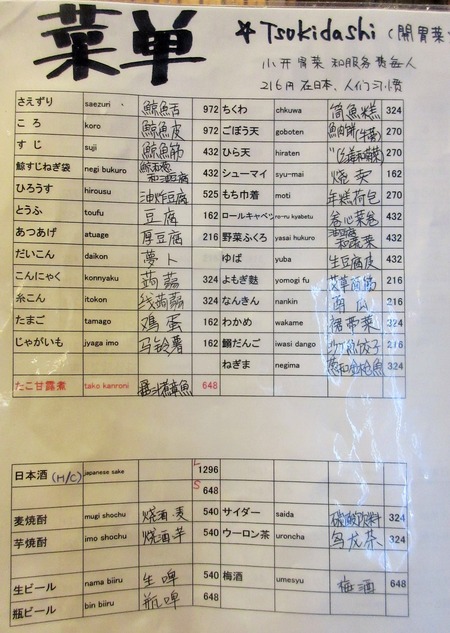 菜单 ☆ Tsukidashi (開胃菜
小开胃菜 和服务费每人
216円 在日本、人们习惯
さえずり saezuri 鯨魚舌 972 ちくわ chkuwa 魚糕 324
ころ koro 鯨魚皮 972 ごぼう天 goboten 270
すじ suji 鯨魚筋 432 ひら天 hiraten 270
鯨すじねぎ袋 negi bukuro 432 シューマイ syu-mai 烧卖 162
ひろうす hirousu 油炸豆腐 525 もち巾着 moti 年糕荷包 270
とうふ toufu 豆腐 162 ロールキャベツ ro-ru kyabetu 卷心菜卷 432
あつあげ atuage 厚豆腐 216 野菜ふくろ yasai hukuro 432
だいこん daikon 萝卜 324 ゆば yuba 生豆腐皮 432
こんにゃく konnyaku 蒟蒻 324 よもぎ麩 yomogi fu 216
糸こん itokon 线蒟蒻 324 なんきん nankin 南瓜 216
たまご tamago 鸡蛋 162 わかめ wakame 裙带菜 324
じゃがいも jyaga imo 马铃薯 162 鰯だんご iwasi dango 216
ねぎま negima 葱和金枪魚 324
たこ甘露煮 tako kanroni 648
日本酒 (H/C) japanese sake L 1296
S 648
麦焼酎 mugi shochu 烧酒·麦 540 サイダー saida 碳酸饮料 324
芋焼酎 imo shochu 烧酒芋 540 ウーロン茶 uroncha 乌龙茶 324
生ビール nama biiru 生啤 540 梅酒 umesyu 梅酒 648
瓶ビール bin biiru 瓶啤 648